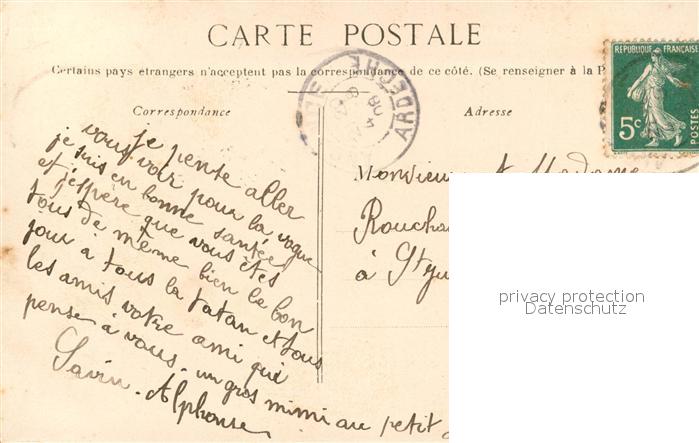 CARTE POSTALE
Certains pays étrangers n'acceptent pas la correspondance de ce côté. (Se renseigner à la P
Correspondance
Adresse
RÉPUBLIQUE FRANÇAISE
5c
POSTES
ARDECHE
08
je pense aller
vous voir pour la vogue
je suis en bonne santée
et j'espère que vous êtes
tous de même bien le bon
jour a tous la tatan et tous
les amis votre ami qui
pense à vous. un gros mimi au petit
Savin Alphonse
Monsieur et Madame
Roucha
à St
privacy protection
Datenschutz